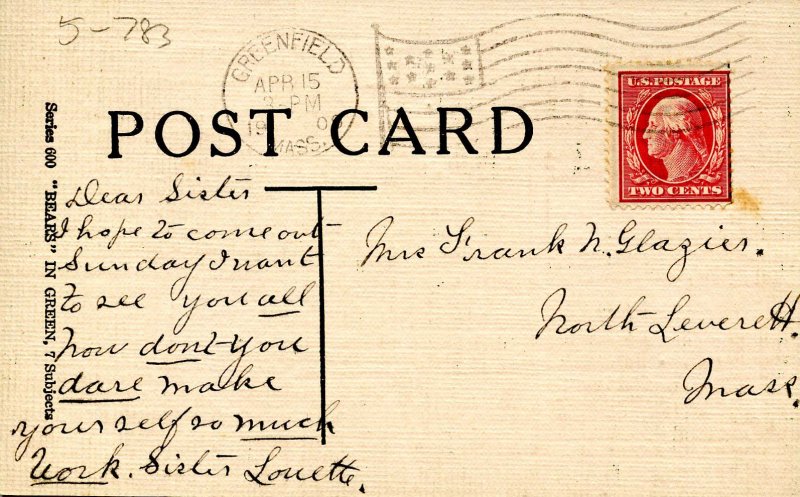 5-783
GREENFIELD
APR 15
3-PM
MASS.
U.S. POSTAGE
TWO CENTS
POST CARD
Series 600 "BEARS" IN GREEN, 7 Subjects
Dear Sister
I hope to come out
Sunday I want
to see you all
now dont you
dare make
yourself so much
work. Sister Louette.
Mrs Frank N. Glazier.
North Leverett.
Mass.